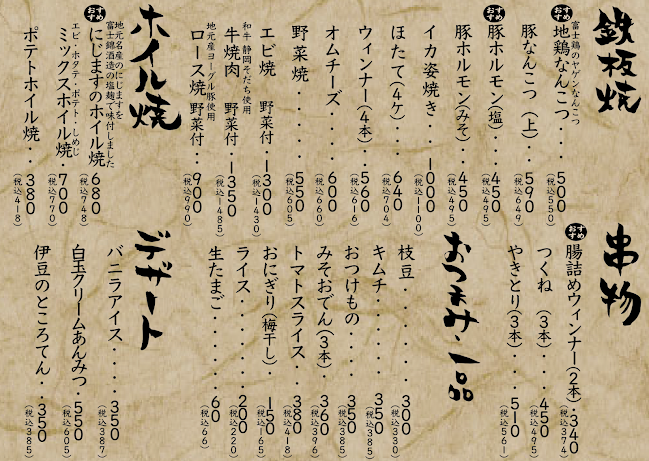 鉄板焼
富士鶏のヤゲンなんこつ
おすすめ 地鶏なんこつ・・・500（税込550）
豚なんこつ（上）・・590（税込649）
おすすめ 豚ホルモン（塩）・・450（税込495）
豚ホルモン（みそ）・・450（税込495）
イカ姿焼き・・1000（税込1100）
ほたて（4ケ）・・・640（税込704）
ウィンナー（4本）・560（税込616）
オムチーズ・・・・600（税込660）
野菜焼・・・・・550（税込605）
エビ焼 野菜付・・1300（税込1430）
和牛 静岡そだち使用
牛焼肉 野菜付・・1350（税込1485）
地元産ヨーグル豚使用
ロース焼 野菜付・・900（税込990）
ホイル焼
地元名産のにじますを
富士錦酒造の塩麹で味付しました
おすすめ にじますのホイル焼 680（税込748）
エビ・ホタテ・ポテト・しめじ
ミックスホイル焼・700（税込770）
ポテトホイル焼・・380（税込418）
串物
おすすめ 腸詰めウィンナー（2本）・340（税込374）
つくね（3本）・・・450（税込495）
やきとり（3本）・・・510（税込561）
おつまみ・一品
枝豆・・・・・・300（税込330）
キムチ・・・・・350（税込385）
おつけもの・・・・350（税込385）
みそおでん（3本）・・360（税込396）
トマトスライス・・・380（税込418）
おにぎり（梅干し）・・150（税込165）
ライス・・・・・200（税込220）
生たまご・・・・・60（税込66）
デザート
バニラアイス・・・・350（税込387）
白玉クリームあんみつ・・550（税込605）
伊豆のところてん・・350（税込385）